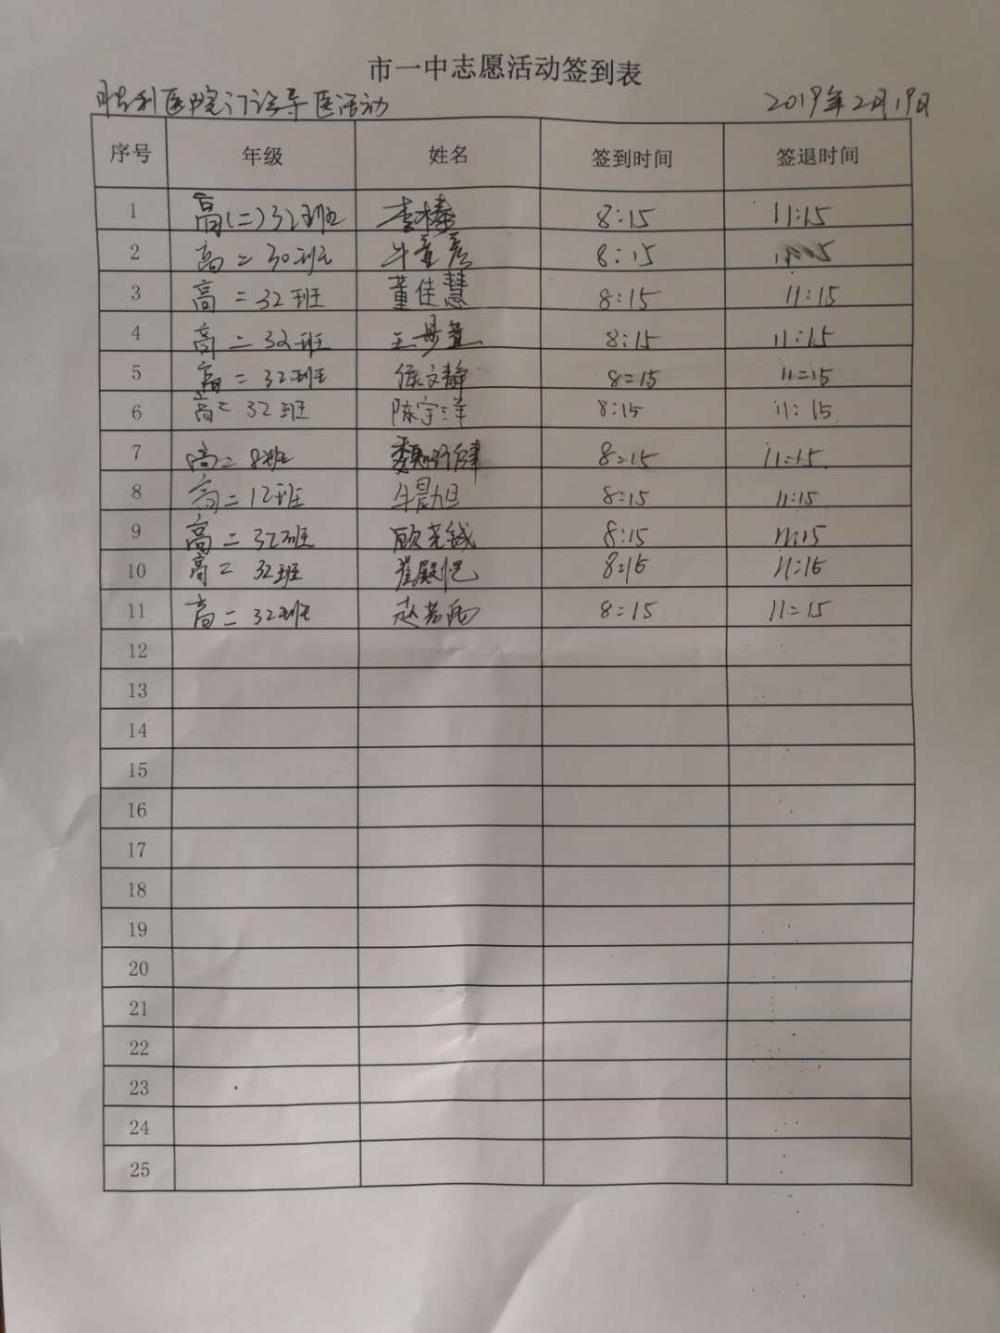 市一中志愿活动签到表
胜利医院门诊导医活动 2019年2月19日
序号 年级 姓名 签到时间 签退时间
1 高(二)32班 李榛 8:15 11:15
2 高二30班 牛童彦 8:15 15
3 高二32班 董佳慧 8:15 11:15
4 高二32班 王 8:15 11:15
5 高二32班 侯文静 8:15 11:15
6 高二32班 陈宇洋 8:15 11:15
7 高二8班 魏 8:15 11:15
8 高二12班 牛晨旭 8:15 11:15
9 高二32班 8:15 11:15
10 高二32班 崔殿 8:15 11:15
11 高二32班 赵若雨 8:15 11:15
12
13
14
15
16
17
18
19
20
21
22
23
24
25